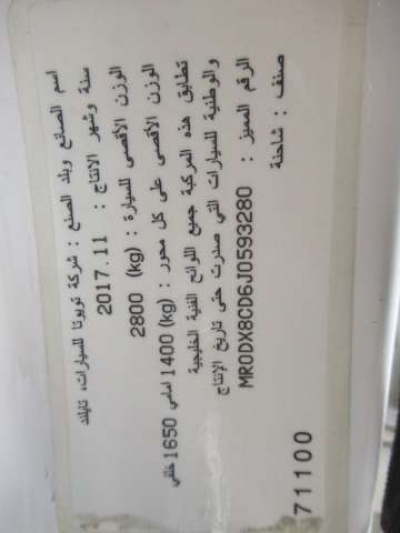 اسم الصانع وبلد الصنع : شركة تويوتا للسيارات، تايلاند
سنة وشهر الانتاج : 2017.11
الوزن الأقصى للسيارة : (kg) 2800
الوزن الأقصى على كل محور : (kg) 1400 امامي 1650 خلفي
تطابق هذه المركبة جميع اللوائح الفنية الخليجية
والوطنية للسيارات التي صدرت حتى تاريخ الإنتاج
الرقم المميز : MR0DX8CD6J0593280
صنف : شاحنة
71100